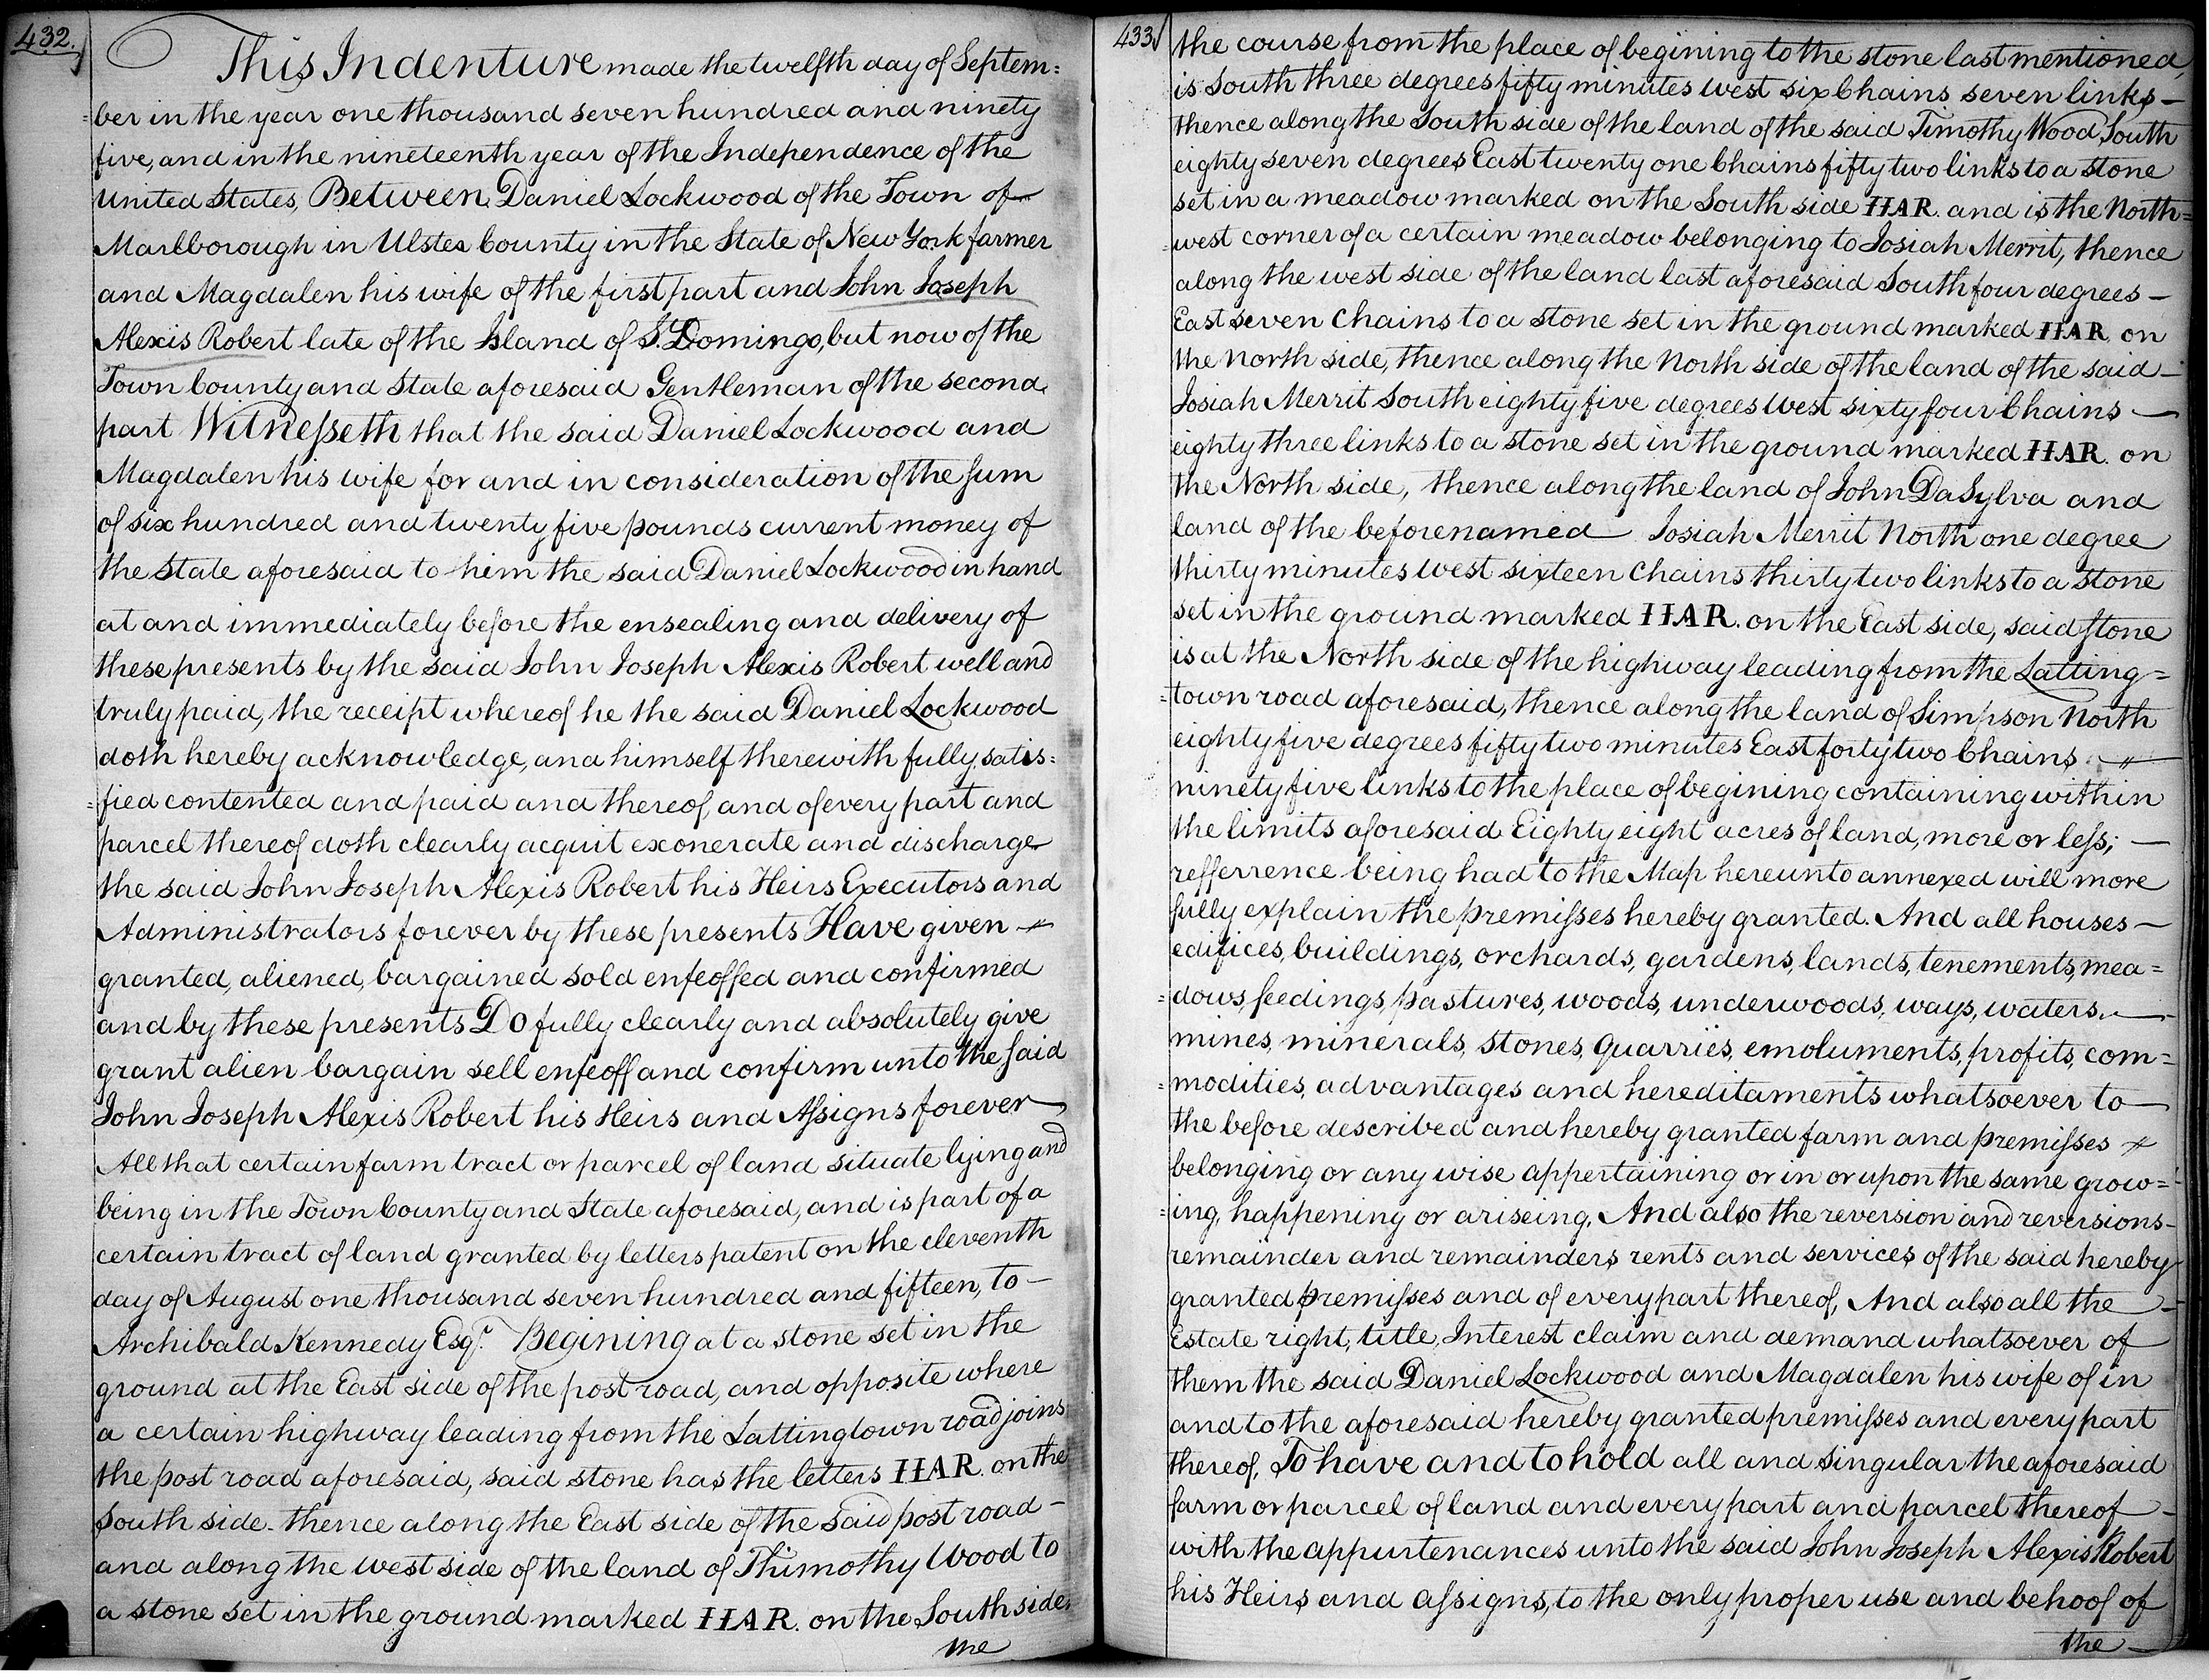 432.
This Indenture made the twelfth day of Septem:
=ber in the year one thousand seven hundred and ninety
five, and in the nineteenth year of the Independence of the
United States, Between Daniel Lockwood of the Town of
Marlborough in Ulster County in the State of New York farmer
and Magdalen his wife of the first part and John Joseph
Alexis Robert late of the Island of St. Domingo, but now of the
Town County and State aforesaid Gentleman of the second
part Witnesseth that the said Daniel Lockwood and
Magdalen his wife for and in consideration of the sum
of six hundred and twenty five pounds current money of
the State aforesaid to him the said Daniel Lockwood in hand
at and immediately before the ensealing and delivery of
these presents by the said John Joseph Alexis Robert well and
truly paid, the receipt whereof he the said Daniel Lockwood
doth hereby acknowledge, and himself therewith fully satis:
=fied contented and paid and thereof, and of every part and
parcel thereof doth clearly acquit exonerate and discharge
the said John Joseph Alexis Robert his Heirs Executors and
Administrators forever by these presents Have given
granted, aliened, bargained sold enfeoffed and confirmed
and by these presents Do fully clearly and absolutely give
grant alien bargain sell enfeoff and confirm unto the said
John Joseph Alexis Robert his Heirs and Assigns forever
All that certain farm tract or parcel of land situate lying and
being in the Town County and State aforesaid, and is part of a
certain tract of land granted by letters patent on the eleventh
day of August one thousand seven hundred and fifteen, to —
Archibald Kennedy Esqr. Begining at a stone set in the
ground at the East side of the post road, and opposite where
a certain highway leading from the Lattingtown road joins
the post road aforesaid, said stone has the letters IIAR. on the
South side. thence along the East side of the said post road —
and along the west side of the land of Thimothy Wood to
a stone set in the ground marked IIAR. on the South side,
the
433
the course from the place of begining to the stone last mentioned,
is South three degrees fifty minutes west six Chains seven links —
thence along the South side of the land of the said Timothy Wood, South
eighty seven degrees East twenty one Chains fifty two links to a stone
set in a meadow marked on the South side IIAR. and is the North=
=west corner of a certain meadow belonging to Josiah Merrit, thence
along the west side of the land last aforesaid South four degrees —
East seven Chains to a stone set in the ground marked IIAR. on
the North side, thence along the North side of the land of the said —
Josiah Merrit South eighty five degrees West sixty four Chains —
eighty three links to a stone set in the ground marked IIAR. on
the North side, thence along the land of John DaSylva and
land of the beforenamed Josiah Merrit North one degree
thirty minutes West sixteen Chains thirty two links to a stone
set in the ground marked IIAR. on the East side, said stone
is at the North side of the highway leading from the Latting=
=town road aforesaid, thence along the land of Simpson North
eighty five degrees fifty two minutes East forty two Chains
ninety five links to the place of begining containing within
the limits aforesaid Eighty eight acres of land, more or less; —
refferrence being had to the Map hereunto annexed will more
fully explain the premisses hereby granted. And all houses —
edifices, buildings, orchards, gardens, lands, tenements, mea=
=dows, feedings, pastures, woods, underwoods, ways, waters. —
mines, minerals, stones, quarries, emoluments, profits, com=
=modities, advantages and hereditaments whatsoever to —
the before described and hereby granted farm and premisses
belonging or any wise appertaining or in or upon the same grow=
=ing, happening or ariseing. And also the reversion and reversions —
remainder and remainders rents and services of the said hereby
granted premisses and of every part thereof, And also all the —
Estate right, title, Interest claim and demand whatsoever of
them the said Daniel Lockwood and Magdalen his wife of in
and to the aforesaid hereby granted premisses and every part
thereof, To have and to hold all and singular the aforesaid
farm or parcel of land and every part and parcel thereof —
with the appurtenances unto the said John Joseph Alexis Robert
his Heirs and assigns, to the only proper use and behoof of
the —